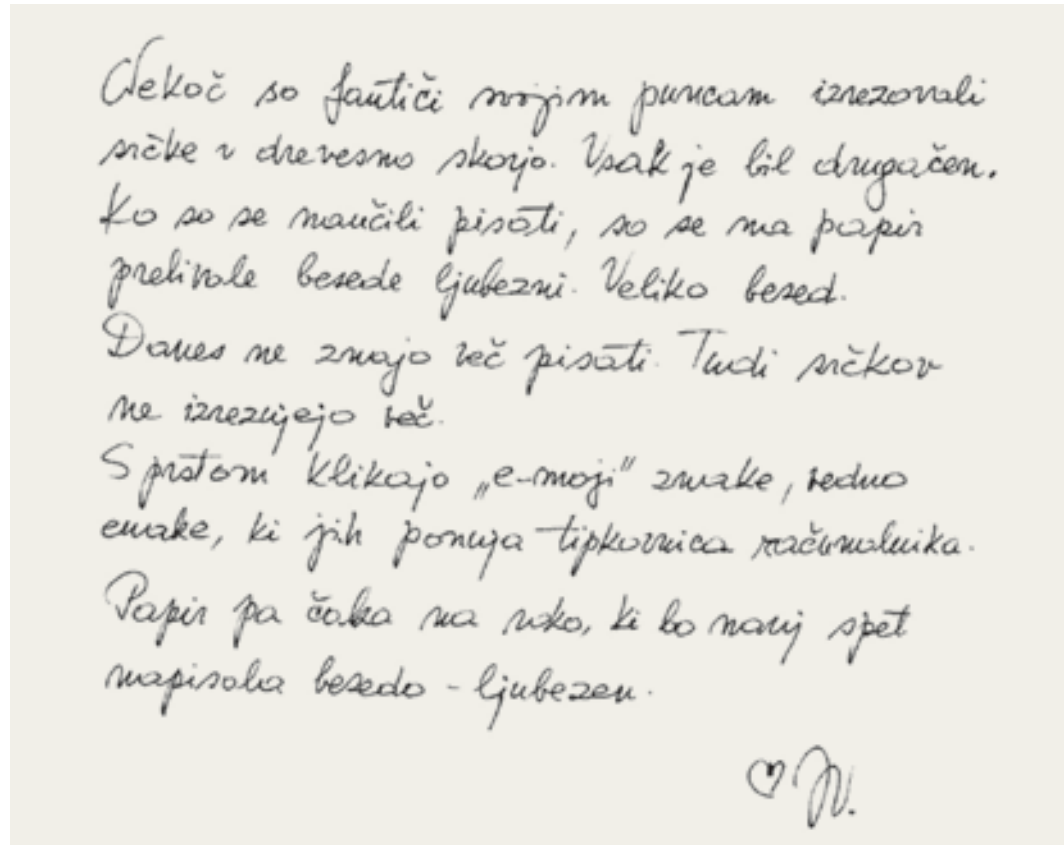 Nekoč so fantiči svojim puncam izrezovali
srčke v drevesno skorjo. Vsak je bil drugačen.
Ko so se naučili pisati, so se na papir
prelivale besede ljubezni. Veliko besed.
Danes ne znajo več pisati. Tudi srčkov
ne izrezujejo več.
S prstom klikajo „e-moji" znake, vedno
enake, ki jih ponuja tipkovnica računalnika.
Papir pa čaka na roko, ki bo nanj spet
napisala besedo - ljubezen.